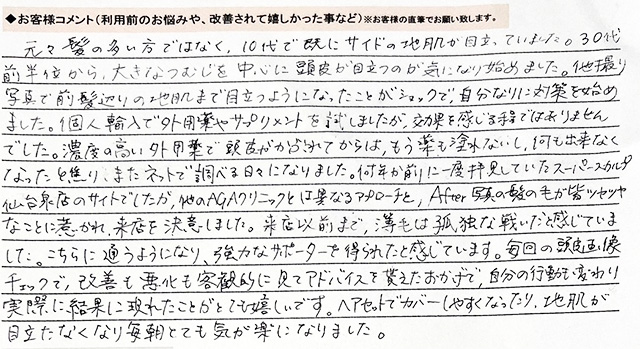 ◆お客様コメント(利用前のお悩みや、改善されて嬉しかった事など)※お客様の直筆でお願い致します。
元々髪の多い方ではなく、10代で既にサイドの地肌が目立っていました。30代
前半位から、大きなつむじを中心に頭皮が目立つのが気になり始めました。他撮り
写真で前髪辺りの地肌まで目立つようになったことがショックで、自分なりに対策を始め
ました。個人輸入で外用薬やサプリメントを試しましたが、効果を感じる手段ではありません
でした。濃度の高い外用薬で頭皮がかぶれてからは、もう薬も塗れないし、何も出来なく
なったと焦り、またネットで調べる日々になりました。何年か前に一度拝見していたスーパースカルプ
仙台泉店のサイトでしたが、他のAGAクリニックとは異なるアプローチと、After写真の髪の毛が皆ツヤツヤ
なことに惹かれ、来店を決意しました。来店以前まで、薄毛は孤独な戦いだと感じていま
した。こちらに通うようになり、強力なサポーターを得られたと感じています。毎回の頭皮画像
チェックで、改善も悪化も客観的に見てアドバイスを貰えたおかげで、自分の行動も変わり
実際に結果に現れたことがとても嬉しいです。ヘアセットでカバーしやすくなったり、地肌が
目立たなくなり毎朝とても気が楽になりました。